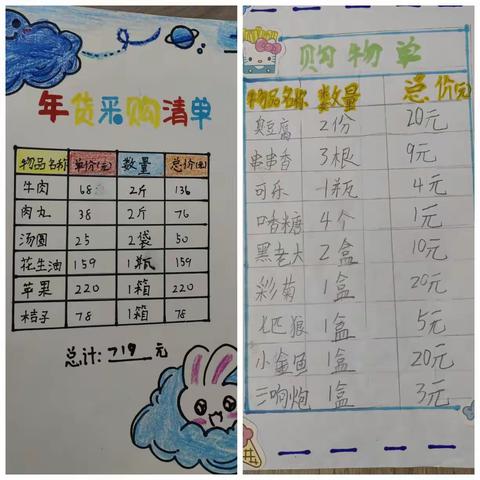 年货采购清单
物品名称 单价(元) 数量 总价(元)
牛肉 68 2斤 136
肉丸 38 2斤 76
汤圆 25 2袋 50
花生油 159 1瓶 159
苹果 220 1箱 220
桔子 78 1箱 78
总计:719元
购物单
物品名称 数量 总价(元)
臭豆腐 2份 20元
串串香 3根 9元
可乐 1瓶 4元
口香糖 4个 1元
黑老大 2盒 10元
彩菊 1盒 20元
七匹狼 1盒 5元
小金鱼 1盒 20元
三响炮 1盒 3元